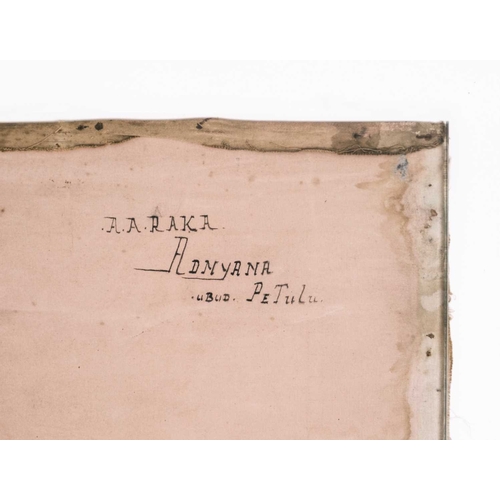 .A.A.RAKA.
ADNYANA
.UBUD. PETULU.